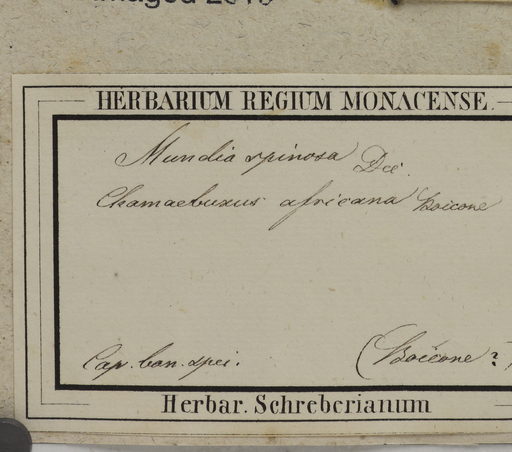 Imaged 2016
HERBARIUM REGIUM MONACENSE.
Mundia spinosa Dec.
Chamaebuxus africana Boicone
Cap. bon. spei. (Boicone ?
Herbar. Schreberianum